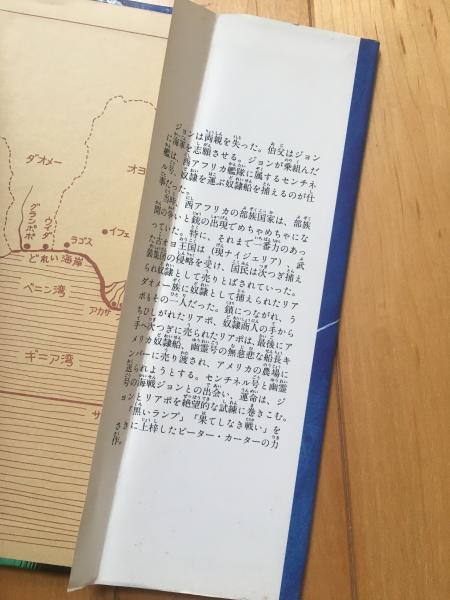 ダオメー
オヨ
グランポポ
ウイダ
ラゴス
イフェ
どれい海岸
ベニン湾
アカサ
ギニア湾
サ
ジョンは両親を失った。伯父はジョン
に海軍を志願させる。ジョンが乗組んだ
艦は、西アフリカ艦隊に属するセンチネ
ル号。奴隷を運ぶ奴隷船を捕えるのが仕
事だった。
当時、西アフリカの部族国家は、部族
間の争いと銃の出現でめちゃめちゃにな
っていた。特に、それまで一番力のあっ
た古オヨ王国は（現ナイジェリア）、武
装集団の侵略を受け、国民は次つぎ捕え
られ奴隷として売りとばされていた。
ダオメー族に奴隷として捕えられたリア
ポもその一人だった。鎖につながれ、う
ちひしがれたリアポ、奴隷商人の手から
手へ次つぎに売られたリアポは、最後にア
メリカ奴隷船、幽霊号の無慈悲な船長キ
ンバーに売り渡され、アメリカの農場に
送られようとする。センチネル号と幽霊
号の海戦ジョンとの出会い、運命は、ジ
ョンとリアポを絶望的な試練に巻きこむ。
「黒いランプ」「果てしなき戦い」を
さきに上梓したピーター・カーターの力
作。